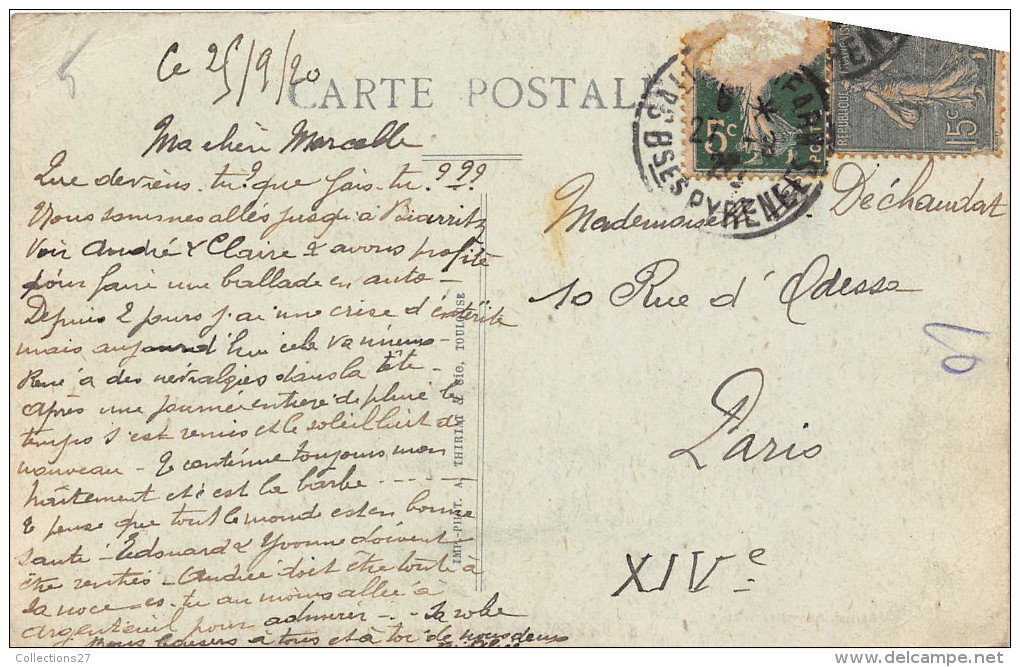 Ce 25/9/20
CARTE POSTALE
Ma chère Marcelle
Que deviens-tu? que fais-tu???
Nous sommes allés jusqu'à Biarritz
voir André & Claire & avons profité
pour faire une ballade en auto-
Depuis 2 jours j'ai une crise d'entérite
mais aujourd'hui cela va mieux-
René a des névralgies dans la tête-
Après une journée entière de pluie le
temps s'est remis et le soleil luit d
nouveau - Je continue toujours mon
traitement et c'est la barbe -----
Je pense que tout le monde est en bonne
santé - Edouard & Yvonne doivent
être rentrés - Andrée doit être toute à
sa noce - es-tu au moins allée à
Argenteuil pour admirer - sa robe
Nous baisers à tous et à toi de nous deux
Mademoiselle Déchaudat
10 Rue d'Odessa
Paris
XIVe
5c
15c
POSTES
RÉPUBLIQUE
BSES PYRENEES
IMP.-PHOT. A. THIRIAT & Cie, TOULOUSE
Collections27
http://www.delcampe.net